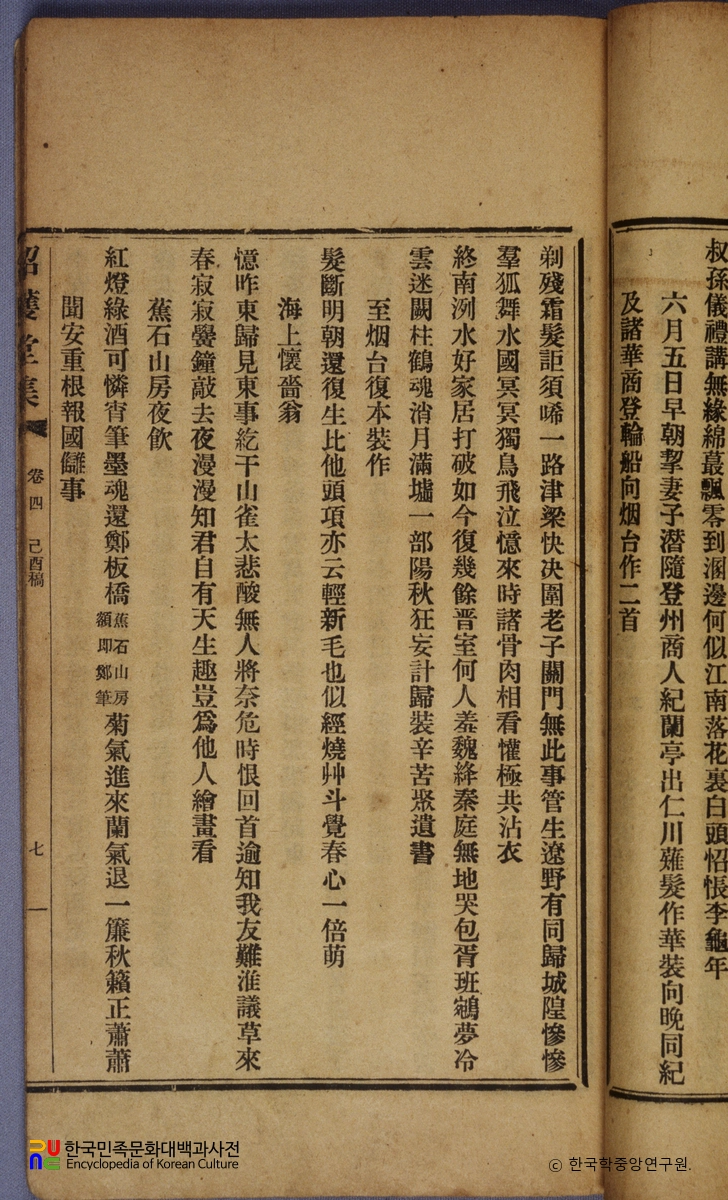 叔孫儀禮講無緣綿蕞飄零到溷邊何似江南落花裏白頭怊悵李龜年
六月五日早朝挈妻子潛隨登州商人紀蘭亭出仁川薙髮作華裝向晚同紀
及諸華商登輪船向烟台作二首
剃殘霜髮詎須唏一路津梁快决圍老子關門無此事管生遼野有同歸城隍慘慘
羣狐舞水國冥冥獨鳥飛泣憶來時諸骨肉相看懽極共沾衣
終南洌水好家居打破如今復幾餘晋室何人羞魏絳秦庭無地哭包胥班鵷夢冷
雲迷闕柱鶴魂消月滿墟一部陽秋狂妄計歸裝辛苦聚遺書
至烟台復本裝作
髮斷明朝還復生比他頭項亦云輕新毛也似經燒艸斗覺春心一倍萌
海上懷嗇翁
憶昨東歸見東事紇干山雀太悲酸無人將奈危時恨回首逾知我友難淮議草來
春寂寂鑾鐘敲去夜漫漫知君自有天生趣豈爲他人繪畫看
蕉石山房夜飮
紅燈綠酒可憐宵筆墨魂還鄭板橋蕉石山房額即鄭筆菊氣進來蘭氣退一簾秋籟正蕭蕭
聞安重根報國讎事
韶濩堂集 卷四 己酉稿 七
한국민족문화대백과사전
Encyclopedia of Korean Culture
© 한국학중앙연구원.